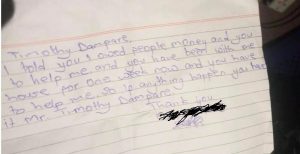 Timothy Dampare.
I told you I owed people money and you
to help me and you have been with me
house for one week now and you have
to help me, so ip anything happen you have
it Mr. Timothy Dampare.
Thank you